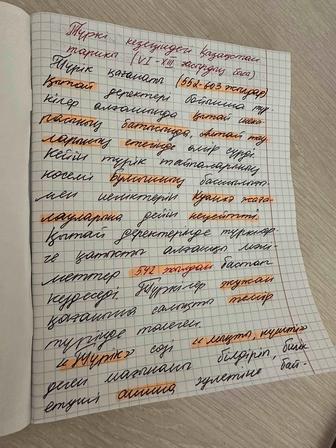 Түркі кезеңіндегі Қазақстан
тарихы (VI-XIII ғасырдың басы)
Түрік қағанаты (552-603 жылдар)
Қытай деректері бойынша түр
кілер алғашында қытай
батысында, Алтай тау
ларының етегінде өмір сүрді.
Кейін түрік тайпаларының
көсемі Бумынның басшылығы
мен иеліктерін Хуанхэ жаға
лауларына дейін кеңейтті.
Қытай деректерінде түркілер
ге қатысты алғашқы мәлі
меттер 542 жылдан бастап
кездеседі. Түркілер жужан
қағанына салықты темір
түрінде төлеген.
"Түрік" сөзі "мықты, күшті"
деген мағынаны білдіріп, билік
етуші ашина әулетіне бай-